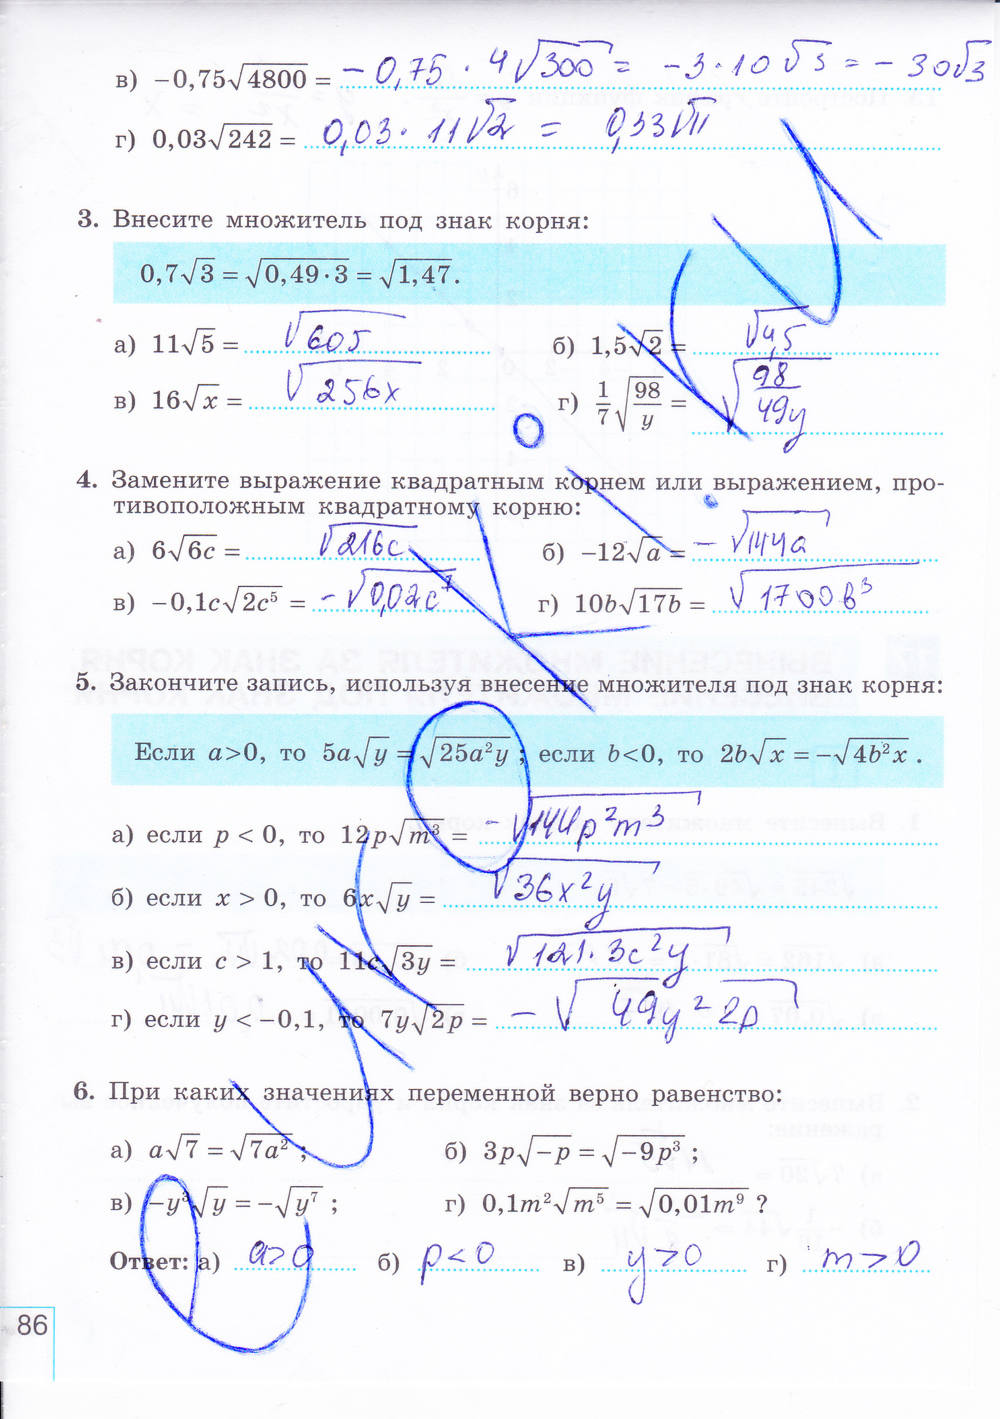 в) −0,75√4800 = −0,75 · 4√300 = −3·10√3 = −30√3
г) 0,03√242 = 0,03 · 11√2 = 0,33√11
3. Внесите множитель под знак корня:
0,7√3 = √0,49·3 = √1,47.
а) 11√5 = √605 б) 1,5√2 = √4,5
в) 16√x = √256x г) 1/7 √98/y = √98/49y
4. Замените выражение квадратным корнем или выражением, про-
тивоположным квадратному корню:
а) 6√6c = √216c б) −12√a = −√144a
в) −0,1c√2c⁵ = −√0,02c⁷ г) 10b√17b = √1700b³
5. Закончите запись, используя внесение множителя под знак корня:
Если a>0, то 5a√y = √25a²y ; если b<0, то 2b√x = −√4b²x .
а) если p < 0, то 12p√m³ = −√144p²m³
б) если x > 0, то 6x√y = √36x²y
в) если c > 1, то 11c√3y = √121·3c²y
г) если y < −0,1, то 7y√2p = −√49y²2p
6. При каких значениях переменной верно равенство:
а) a√7 = √7a² ; б) 3p√−p = √−9p³ ;
в) −y³√y = −√y⁷ ; г) 0,1m²√m⁵ = √0,01m⁹ ?
Ответ: а) a>0 б) p<0 в) y>0 г) m>0
86